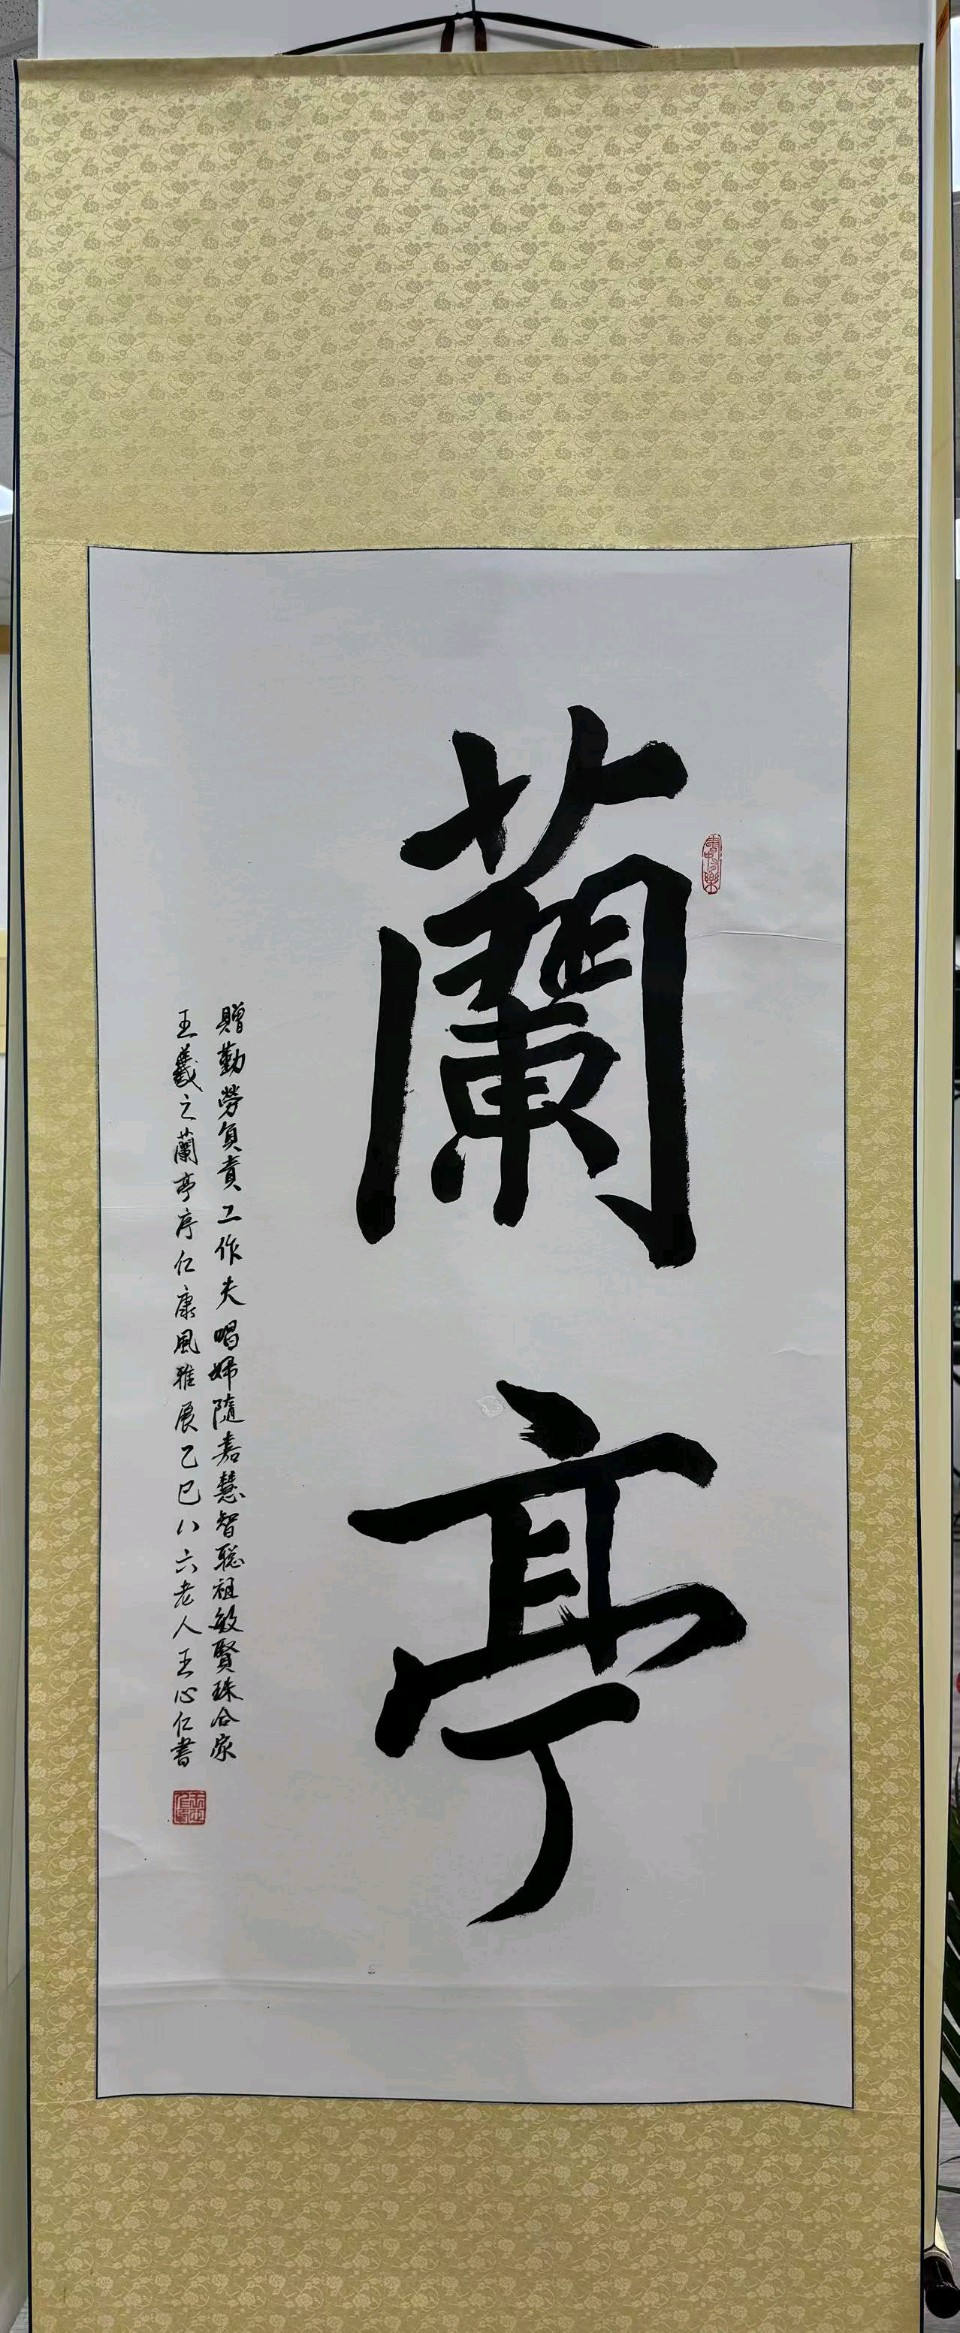 蘭亭
贈勤勞負責工作夫唱婦隨嘉慧智聡祖敏賢珠合家
王羲之蘭亭序仁康風雅展乙巳八六老人王心仁書